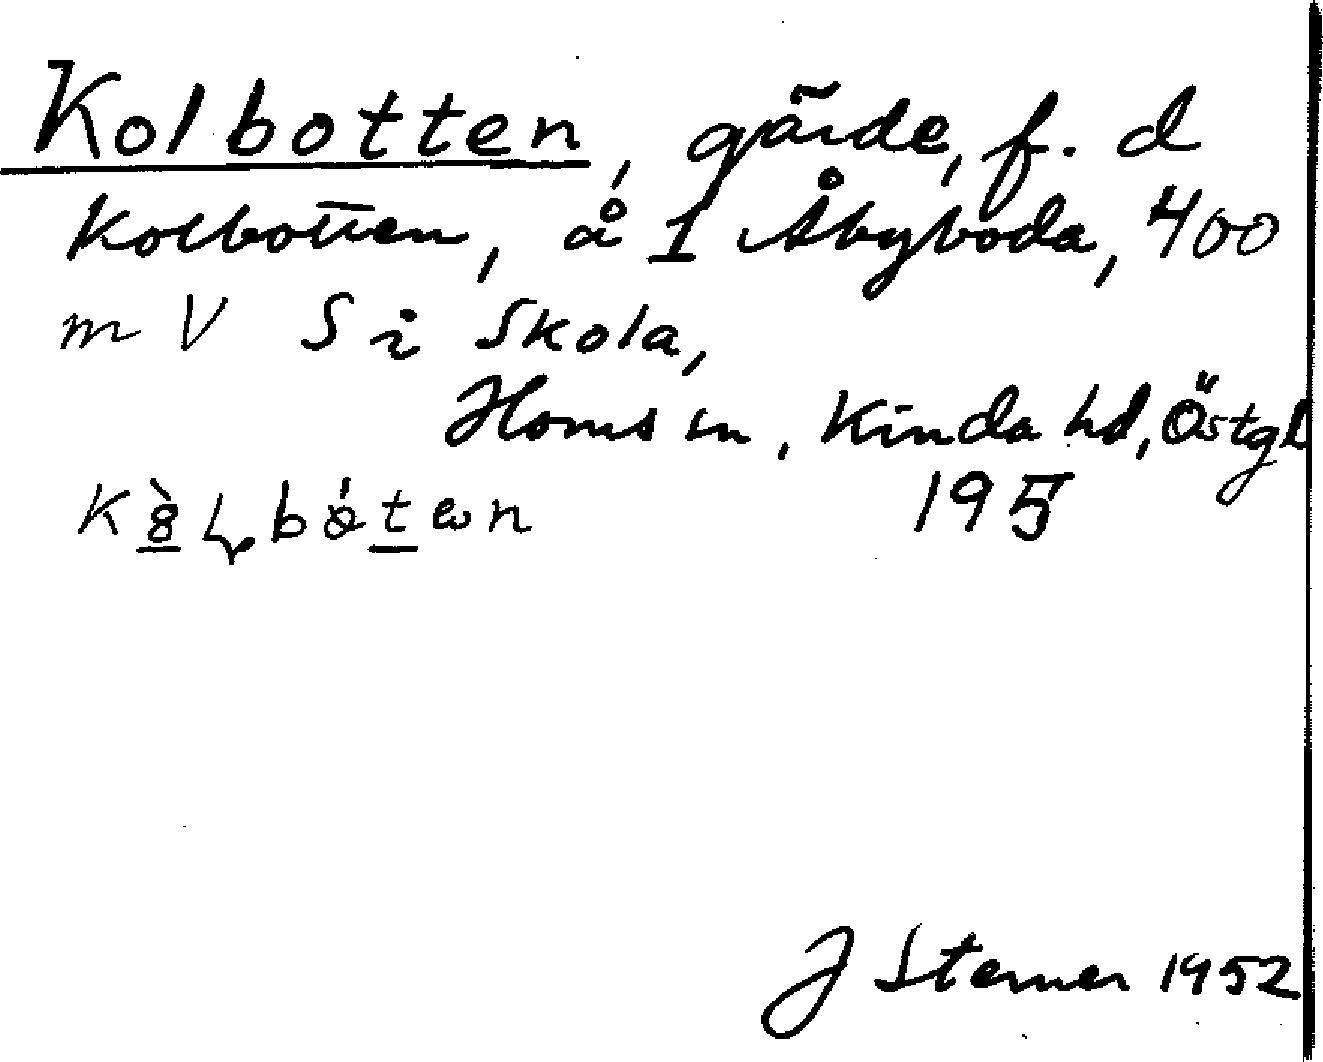 Kolbotten, gärde, f. d
kolbotten, å 1 Åbyboda, 400
m V S i Skola,
Horns sn, Kinda hd, Östgl
195
J Sterner 1952